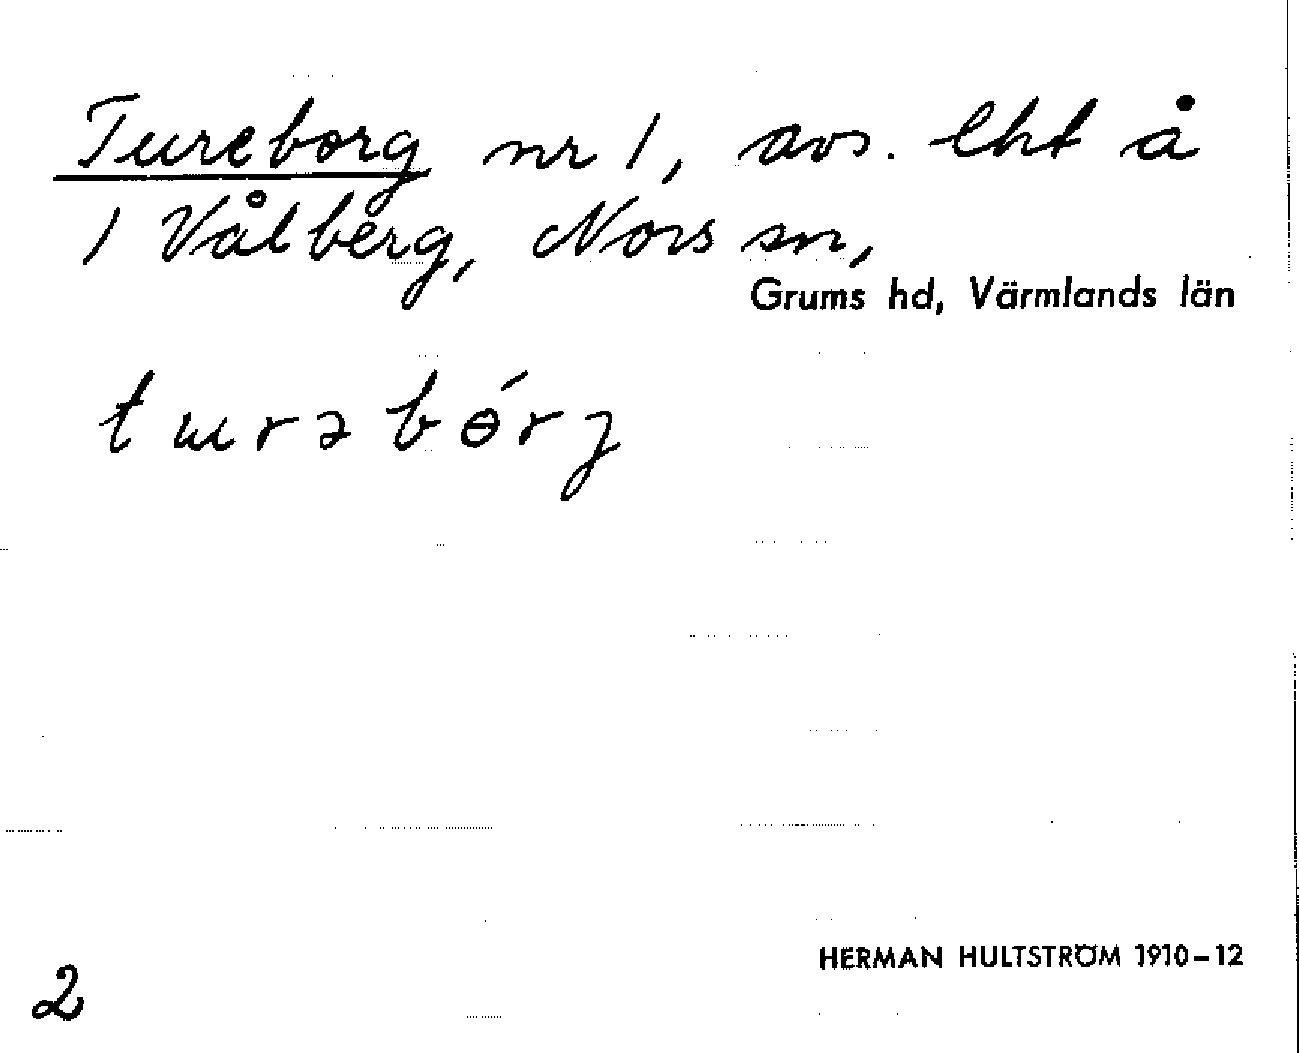 Tureborg nr 1, avs. lht å
1 Vålberg, Nors sn,
Grums hd, Värmlands län
tɯrəbɵ́rj
HERMAN HULTSTRÖM 1910-12
2